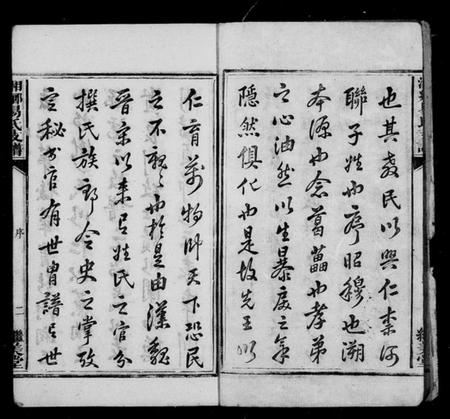 也其教民以興仁柰何
聯子姓也序昭穆也溯
本源也念葛藟也孝弟
之心油然以生暴戾之氣
隱然俱化也是故先王以
仁育萬物卹天下恐民
之不親也於是由漢魏
晉宋以來有姓氏之官分
撰氏族郎令史之掌攷
定秘書官有世曾譜有世
湘鄉易氏支譜
序
二
堂